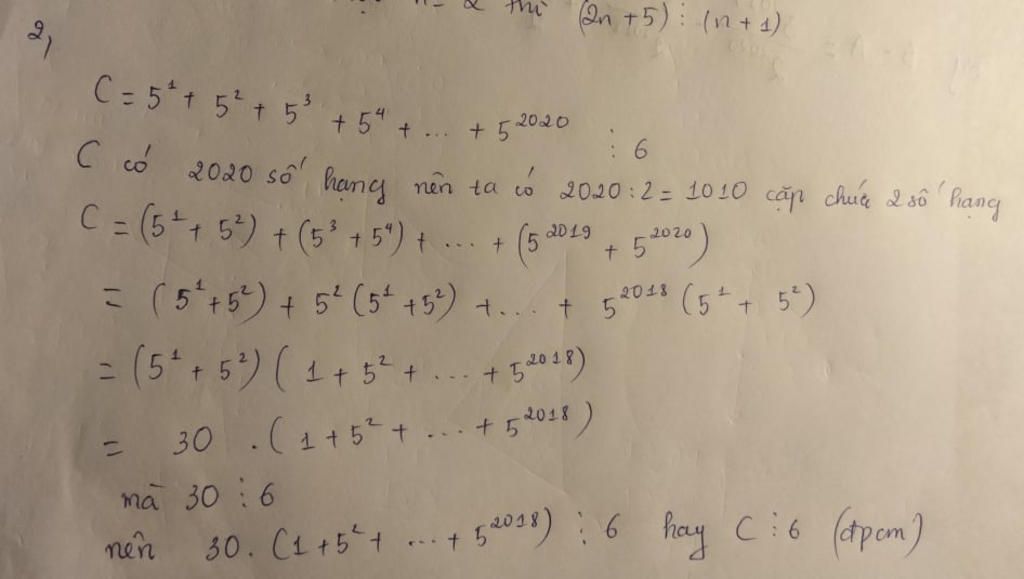 n = 2 thì (2n + 5) ⋮ (n + 1)
2,
C = 5¹ + 5² + 5³ + 5⁴ + ... + 5²⁰²⁰ ⋮ 6
C có 2020 số hạng nên ta có 2020 : 2 = 1010 cặp chứa 2 số hạng
C = (5¹ + 5²) + (5³ + 5⁴) + ... + (5²⁰¹⁹ + 5²⁰²⁰)
= (5¹ + 5²) + 5² (5¹ + 5²) + ... + 5²⁰¹⁸ (5¹ + 5²)
= (5¹ + 5²) (1 + 5² + ... + 5²⁰¹⁸)
= 30 . (1 + 5² + ... + 5²⁰¹⁸)
mà 30 ⋮ 6
nên 30. (1 + 5² + ... + 5²⁰¹⁸) ⋮ 6 hay C ⋮ 6 (đpcm)